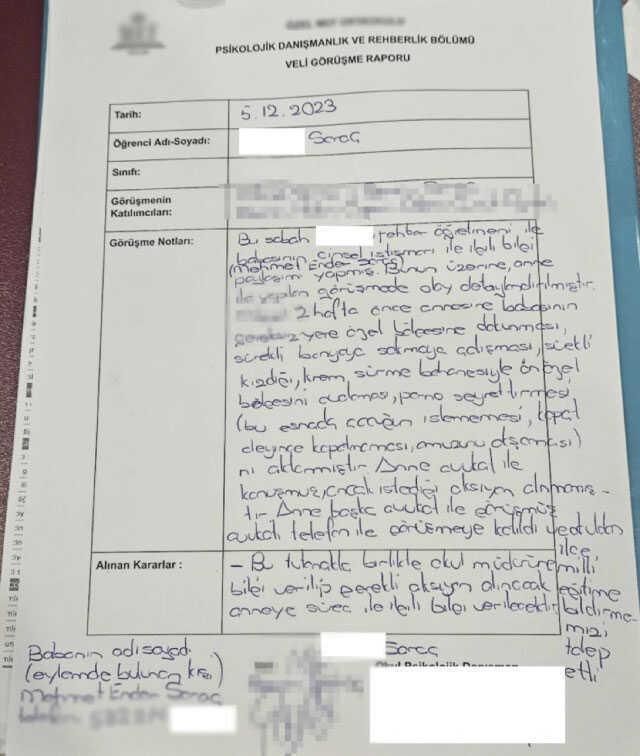 PSİKOLOJİK DANIŞMANLIK VE REHBERLİK BÖLÜMÜ
VELİ GÖRÜŞME RAPORU
Tarih:
5.12.2023
Öğrenci Adı-Soyadı:
Saraç
Sınıfı:
Görüşmenin
Katılımcıları:
Görüşme Notları:
Bu sabah rehber öğretmeni ile
babasının cinsel istismarı ile ilgili bilgi
(Mehmet Ender Saraç)
paylaşımı yapmış. Bunun üzerine, anne
ile yapılan görüşmede olay detaylandırılmıştır.
2 hafta önce annesine babasının
yere özel bölgesine dokunması,
sürekli banyoya sokmaya çalışması, sürekli
kızdığı, krem sürme bahanesiyle ön özel
bölgesini, porno seyrettirmesi
(bu esnada çocuğun istememesi, kapat
deyince kapatmaması,)
nı aktarmıştır. Anne avukat ile
konuşmuş, ancak istediği aksiyon alınmamış-
tır. Anne başka avukat ile görüşmüş
avukat telefon ile görüşmeye katıldı ve okuldan
ilçe
milli
eğitime
bildirme-
mizi
talep
etti
Alınan Kararlar :
- Bu tutanakla birlikte okul müdürüne
bilgi verilip gerekli aksiyon alınacak
anneye süreç ile ilgili bilgi verilecektir.
Babanın adı soyadı
(eylemde bulunan kişi)
Mehmet Ender Saraç
Saraç